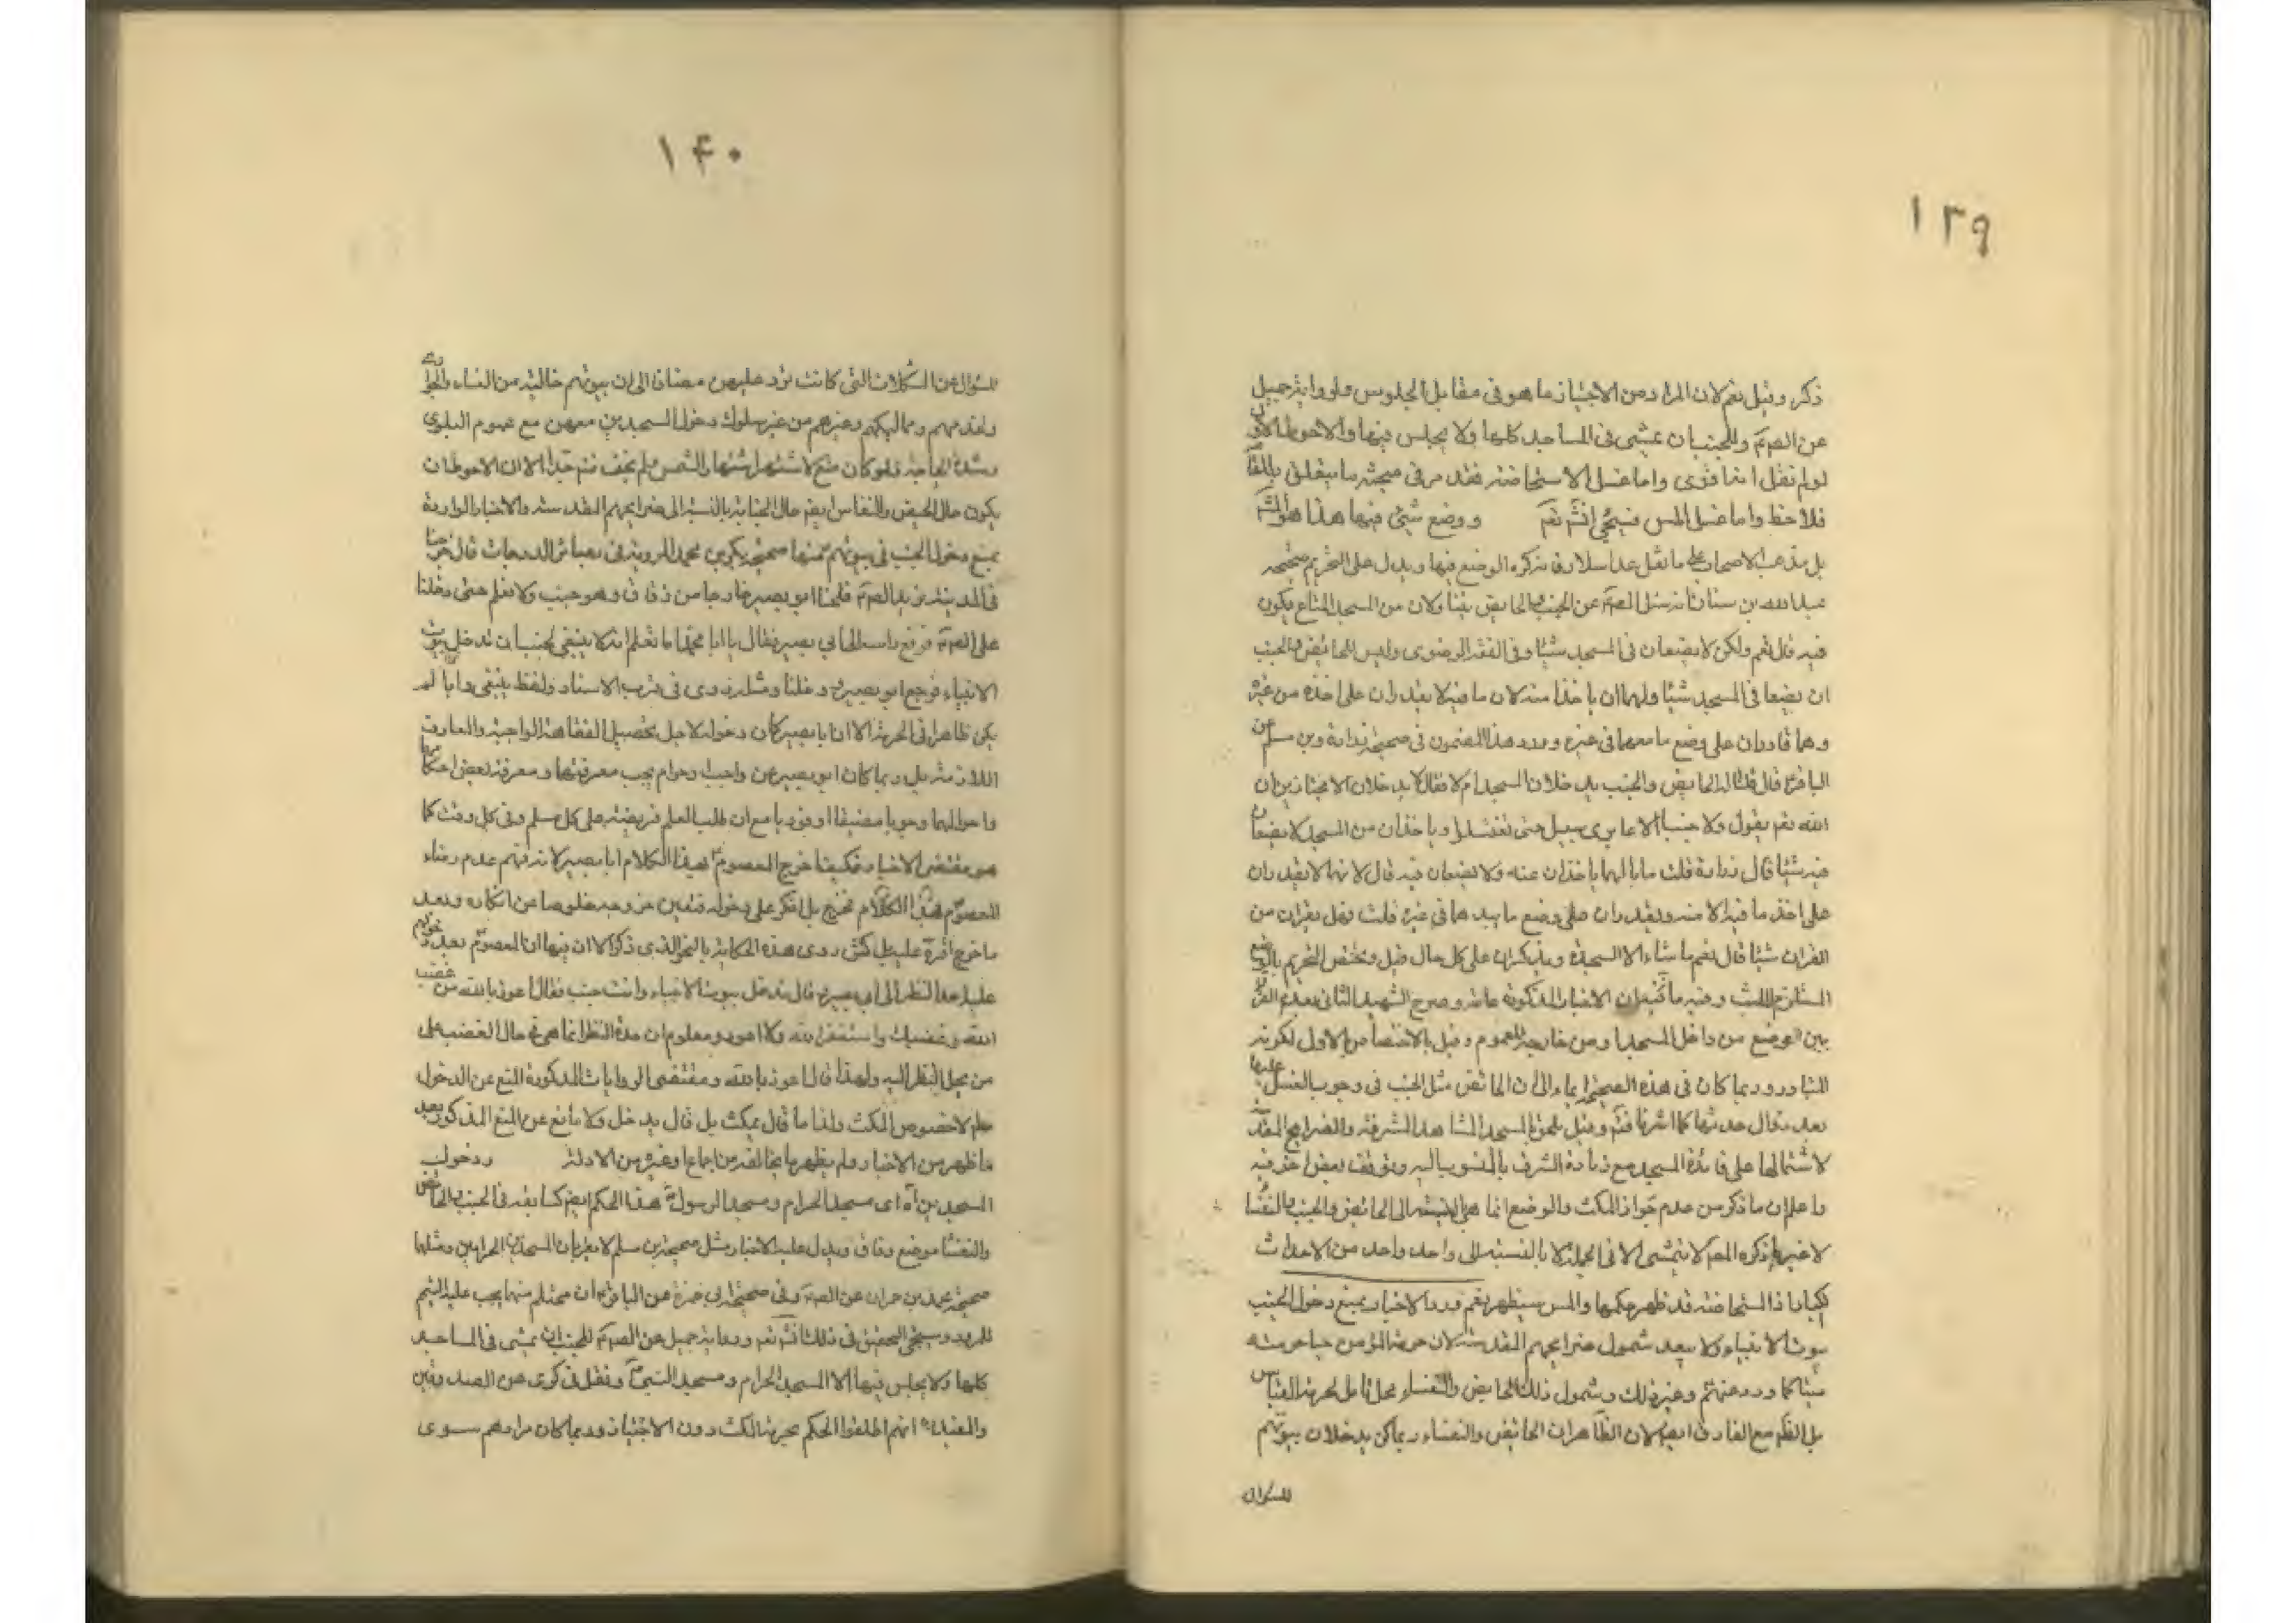 ١٣٩
ذكر وقيل نعم لان المراد من الاجتياز ما هو فى مقابل الجلوس ولرواية جميل
عن الصم وللجنب ان يمشى فى المساجد كلها ولا يجلس فيها والاحوط الاول
لو لم نقل انه اقوى واما غسل الاستحاضة فقد مر فى مبحثه ما يتعلق بالمقام
فلاحظ واما غسل المس فسيجئ انشآء تعم ووضع شئ فيها هذا هو المشهور
بل مذهب الاصحاب على ما نقل عدا سلار فانه كره الوضع فيها ويدل على التحريم صحيحة
عبد الله بن سنان انه سئل الصم عن الجنب والحايض يتناولان من المسجد المتاع يكون
فيه قال نعم ولكن لا يضعان فى المسجد شيئا وفى الفقه الرضوى وليس للحائض والجنب
ان يضعا فى المسجد شيئا ولهما ان ياخذا منه لان ما فيه لا يقدران على اخذه من غيره
وهما قادران على وضع ما معهما فى غيره وورد هذا المضمون فى صحيحة زرارة وبن مسلم عن
الباقر قال قلنا له الحايض والجنب يدخلان المسجد ام لا فقال لا يدخلان الا مجتازين ان
الله تعم يقول ولا جنبا الا عابرى سبيل حتى تغتسلوا وياخذان من المسجد لا يضعان
فيه شيئا قال زرارة قلت ما بالهما ياخذان منه ولا يضعان فيه قال لانهما لا يقدران
على اخذ ما فيه الا منه ويقدران على وضع ما بيدهما فى غيره قلت فهل يقران من
القران شيئا قال نعم ما شاء الا السجدة ويذكران على كل حال وقيل ويختص التحريم بالوضع
المستلزم للبث وفيه ما فيه لان الاخبار المذكورة عامة وصرح الشهيد الثانى بعدم الفرق
بين الوضع من داخل المسجد او من خارجه للعموم وقيل بالاختصاص بالاول لكونه
المتبادر وربما كان فى هذه الصحيحة ايماء الى ان الحائض مثل الجنب فى وجوب الغسل عليها
بعد زوال حدثها كما اشرنا فتم وقيل يلحق بالمسجد المشاهد المشرفة والضرايح المقدسة
لاشتمالها على فائدة المسجد مع زيادة الشرف بالمنسوب اليه وتوقف بعض اخر فيه
واعلم ان ما ذكر من عدم جواز المكث والوضع انما هو بالنسبة الى الحائض والجنب والنفساء
لا غير فما ذكره المصم لا يتمشى الا فى الجملة لا بالنسبة الى واحد واحد من الاحداث
الكبار اذ المستحاضة قد ظهر حكمها والمس سيظهر نعم ورد الاخبار بمنع دخول الجنب
بيوت الانبياء ولا يبعد شمول ضرايحهم المقدسة لان حرمة المؤمن حيا حرمته
ميتا كما ورد عنهم وغير ذلك وشمول ذلك الحايض والنفساء محل تامل لحرمة القياس
بل الظم مع الفارق ايضا لان الظاهر ان الحائض والنفساء ربما كن يدخلان بيوتهم
للسؤال
١٤٠
للسؤال عن المشكلات التى كانت ترد عليهن مضافا الى ان بيوتهم خالية من النساء والجوارى
وخدمهم ومماليكهم وغيرهم من غير سلوك دخول المسجدين معهن مع عموم البلوى
وشدة الحاجة فلو كان منع لاشتهر اشتهار الشمس ولم يخف فتم جدا الا ان الاحوط ان
يكون حال الحيض والنفاس ايضا حال الجنابة بالنسبة الى ضرايحهم المقدسة والاخبار الواردة
بمنع دخول الجنب فى بيوتهم منها صحيحة بكر بن محمد المروية فى بصائر الدرجات قال خرجنا
فى المدينة نريد الصم فلحقنا ابو بصير خارجا من زقاق وهو جنب ولا نعلم حتى دخلنا
على الصم فرفع راسه الى ابى بصير فقال يا ابا محمد اما تعلم انه لا ينبغى لجنب ان تدخل بيوت
الانبياء فرجع ابو بصير ودخلنا ومثله روى فى قرب الاسناد ولفظ ينبغى وان لم
يكن ظاهرا فى الحرمة الا ان ابا بصير كان دخوله لاجل تحصيل الفقاهة الواجبة والمعارف
اللازمة بل ربما كان ابو بصير عن واجب وحرام يجب معرفتها ومعرفة بعض احكامها
واحوالهما وجوبا مضيقا او فوريا مع ان طلب العلم فريضة على كل مسلم وفى كل وقت كما
هو مقتضى الاخبار فكيف اخرج المعصوم بهذا الكلام ابا بصير لانه فهم عدم رضاء
المعصوم بهذا الكلام فخرج بل انكر على دخوله فتعين خروجه خلوصا من انكاره وبعد
ما خرج اقره عليه بل كش روى هذه الحكاية بالنحو الذى ذكر الا ان فيها ان المعصوم بعد دخولهم
عليه احد النظر الى ابى بصير قال تدخل بيوت الانبياء وانت جنب فقال اعوذ بالله من غضب
الله وغضبك واستغفر الله ولا اعود ومعلوم ان حدة النظر انما هو فى حال الغضب على
من يحد النظر اليه ولهذا قال اعوذ بالله ومقتضى الروايات المذكورة المنع عن الدخول
علم لا خصوص المكث ولذا ما قال يمكث بل قال يدخل ولا مانع عن المنع المذكور بعد
ما ظهر من الاخبار ولم يظهر ما يخالفه من اجماع او غيره من الادلة ودخول
المسجدين آه اى مسجد الحرام ومسجد الرسول هذا الحكم ايضا كسابقه فى الجنب والحائض
والنفساء موضع وفاق ويدل عليه الاخبار مثل صحيحة بن مسلم لا يقربان المسجدين الحرامين ومثلها
صحيحة محمد بن حمران عن الصم وفى صحيحة ابى حمزة عن الباقر ان محتلم منها يجب عليه التيمم
للمرور وسيجئ التحقيق فى ذلك انشآء تعم ورواية جميل عن الصم للجنب ان يمشى فى المساجد
كلها ولا يجلس فيها الا المسجد الحرام ومسجد النبى ونقل فى كرى عن الصدوقين
والمفيد انهم اطلقوا الحكم بحرمة المكث دون الاجتياز وربما كان مرادهم سوى